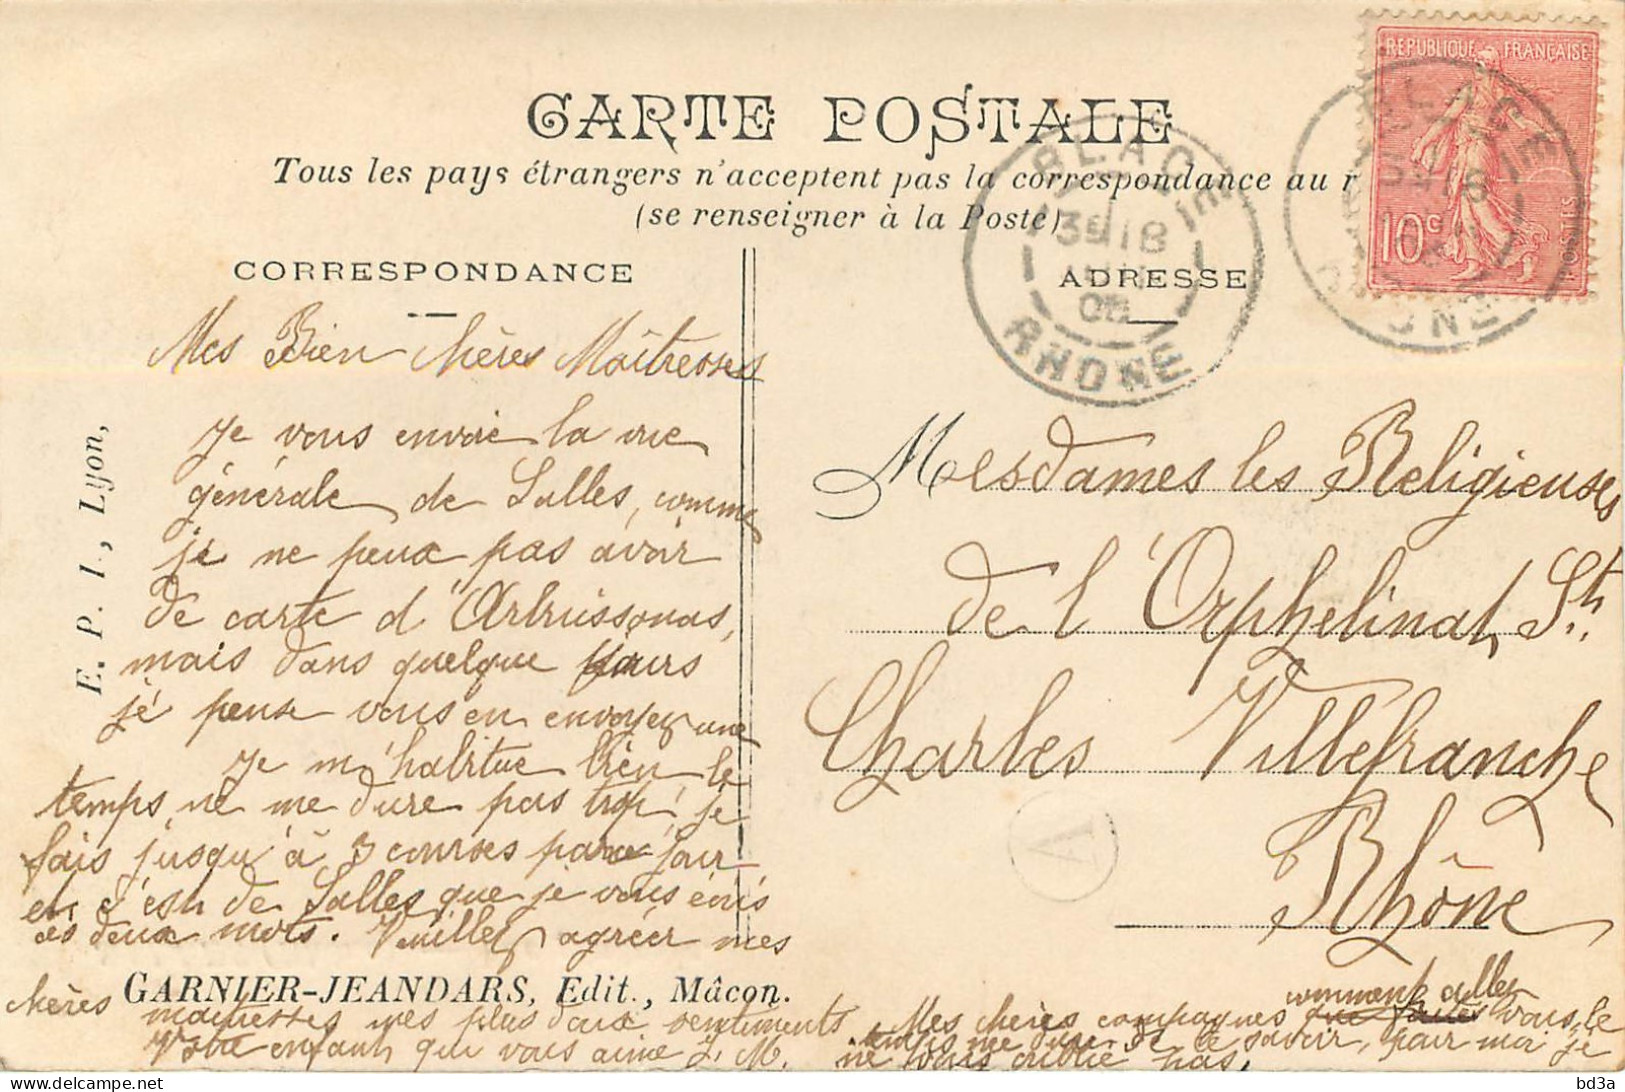 REPUBLIQUE FRANÇAISE
10c POSTES
CARTE POSTALE
Tous les pays étrangers n'acceptent pas la correspondance au r
(se renseigner à la Poste)
BLACÉ
RHONE
CORRESPONDANCE
ADRESSE
E. P. I., Lyon,
Mes Bien chères Maîtresses
Je vous envoie la vue
générale de Salles, comme
je ne peux pas avoir
de carte d'Arbuissonas,
mais dans quelque jours
je pense vous en envoyer une
Je m'habitue bien le
temps ne me dure pas trop, je
fais jusqu'à 3 courses par jour
et c'est de Salles que je vous écris
ces deux mots. Veuillez agréer mes
chères GARNIER-JEANDARS, Edit., Mâcon.
maîtresses mes plus doux sentiments.
Votre enfant qui vous aime J. M.
Mesdames les Religieuses
de l'Orphelinat St.
Charles Villefranche
Rhône
A
comment allez
Mes chères compagnes vous, le
temps me dure de le savoir, pour moi je
ne vous oublie pas.